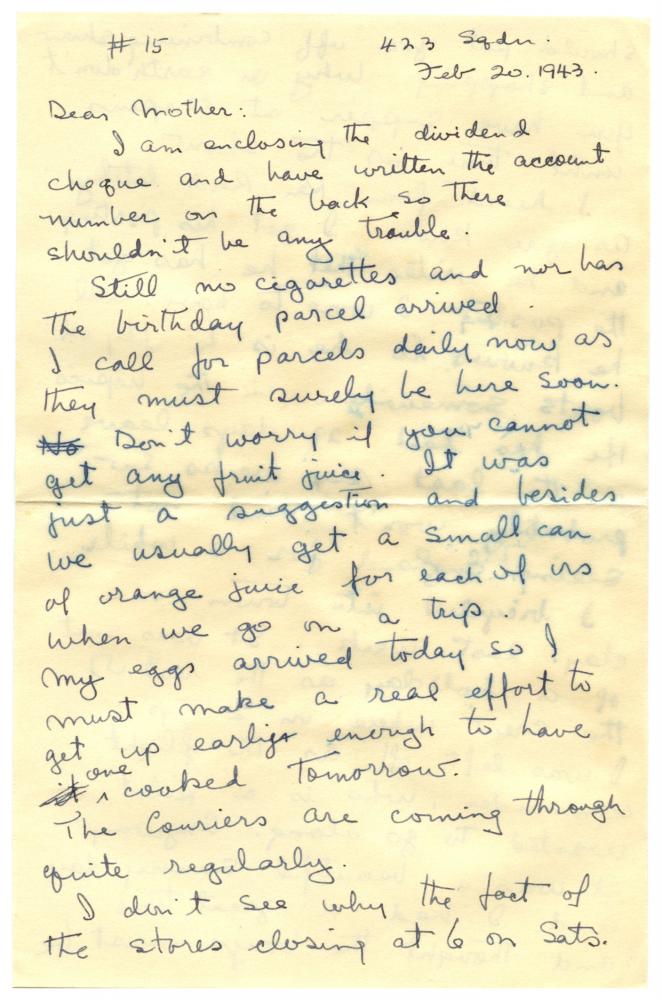 # 15 423 Sqdn.
Feb 20. 1943.
Dear Mother:
I am enclosing the dividend
cheque and have written the account
number on the back so there
shouldn't be any trouble.
Still no cigarettes and nor has
the birthday parcel arrived.
I call for parcels daily now as
they must surely be here soon.
No Don't worry if you cannot
get any fruit juice. It was
just a suggestion and besides
we usually get a small can
of orange juice for each of us
when we go on a trip.
My eggs arrived today so I
must make a real effort to
get up earlier enough to have
it one cooked tomorrow.
The Couriers are coming through
quite regularly.
I don't see why the fact of
the stores closing at 6 on Sats.